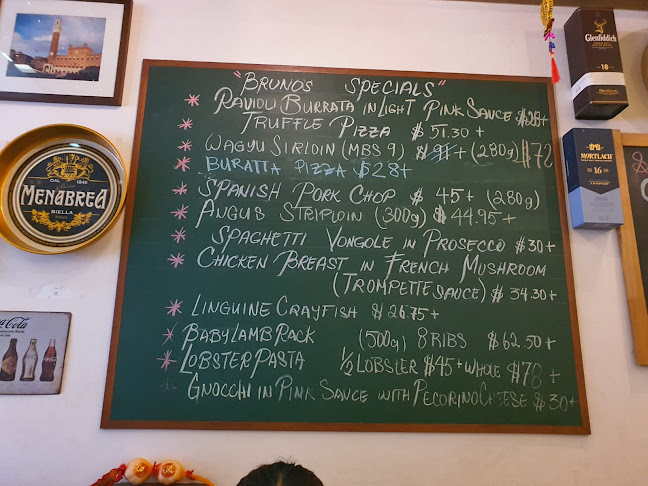 "BRUNO'S SPECIALS"
* RAVIOLI BURRATA IN LIGHT PINK SAUCE $28+
* TRUFFLE PIZZA $51.30+
* WAGYU SIRLOIN (MBS 9) $91+ (280g) $72
* BURATTA PIZZA $28+
* SPANISH PORK CHOP $45+ (280g)
* ANGUS STRIPLOIN (300g) $44.95+
* SPAGHETTI VONGOLE IN PROSECCO $30+
* CHICKEN BREAST IN FRENCH MUSHROOM
(TROMPETTE SAUCE) $34.30+
* LINGUINE CRAYFISH $26.75+
* BABY LAMB RACK (500g) 8 RIBS $62.50+
* LOBSTER PASTA 1/2 LOBSTER $45+ WHOLE $78+
* GNOCCHI IN PINK SAUCE WITH PECORINO CHEESE $30+
DAL 1846
MENABREA
BIELLA
Coca-Cola
Glenfiddich
18
MORTLACH
16
&